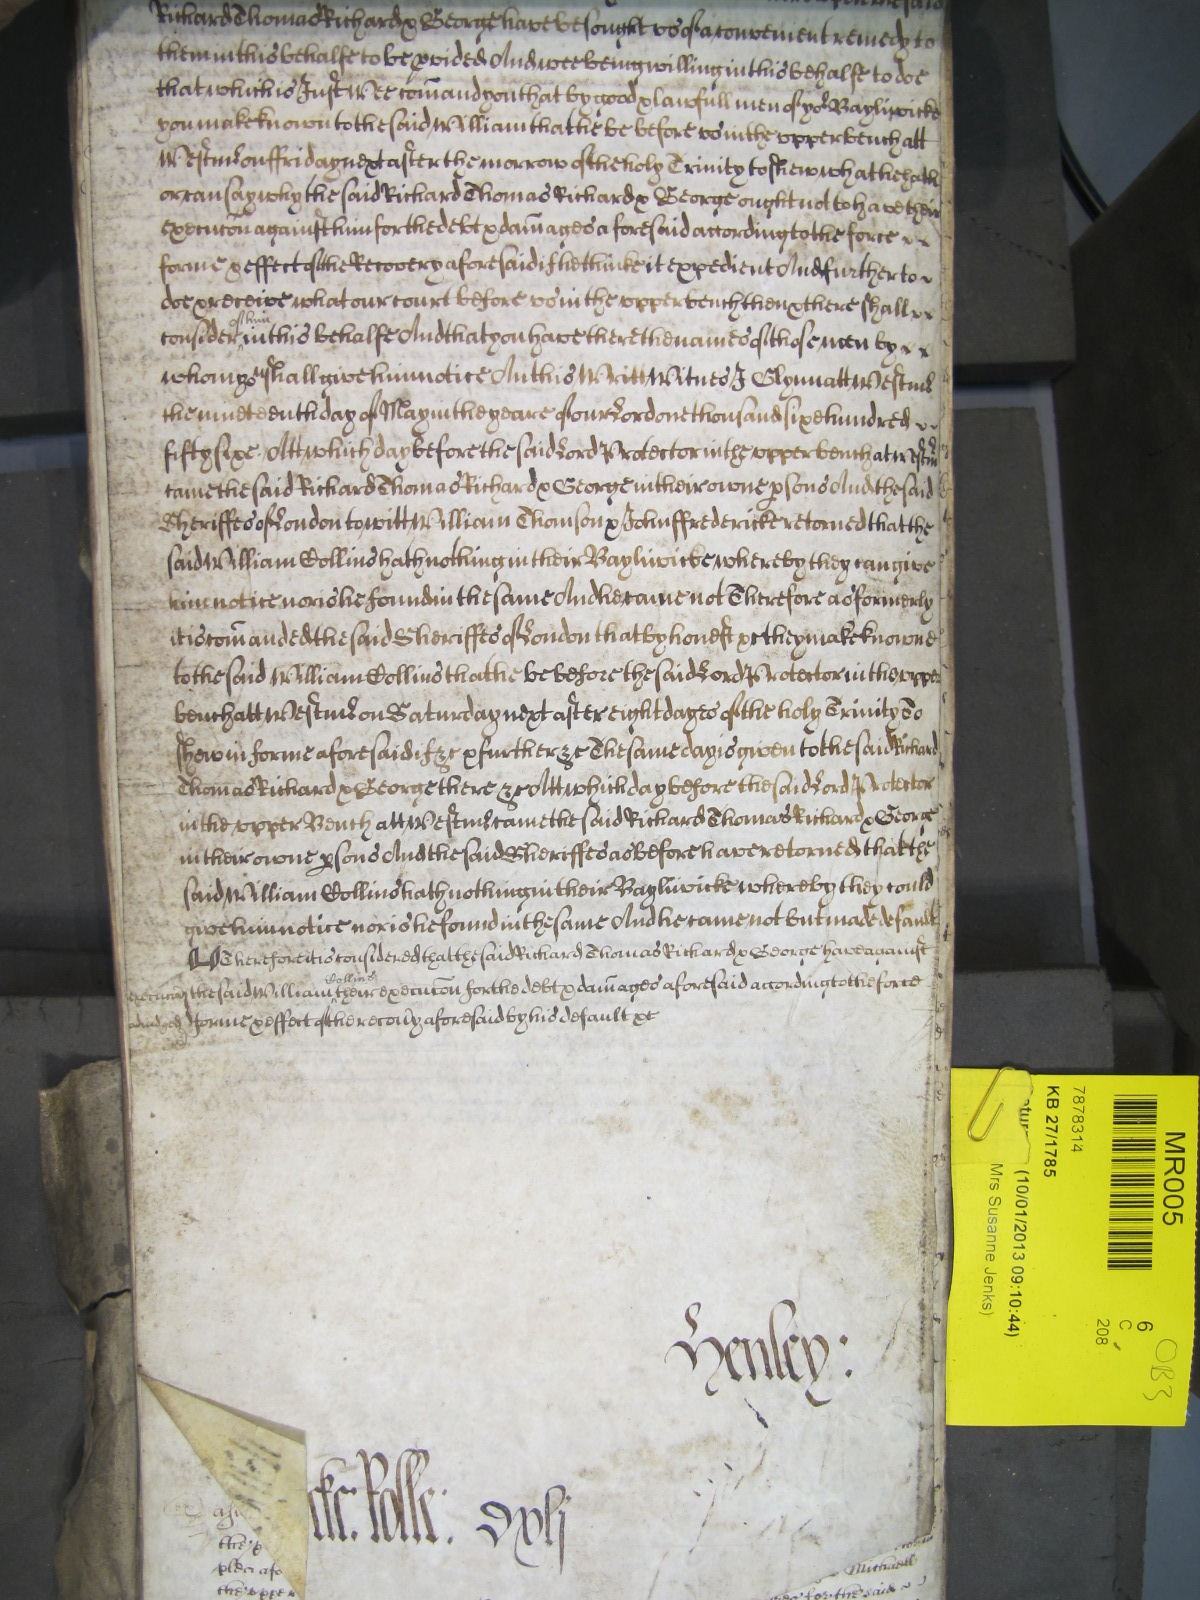 Richard Thomas Richard & George have besought us of a convenient remedy to
them in this behalfe to be pvided And wee being willing in this behalfe to doe
that which is Just Wee com̄and you that by good & lawfull men of yor Bayliwicke
you make known to the said William that he be before us in the upper bench att
Westmr on ffriday next after the morrow of the holy Trinity to shew what he hath
or can say why the said Richard Thomas Richard & George ought not to have their
execucōn against him for the debt & dam̄ages aforesaid according to the force
forme & effect of the Recovery aforesaid if he thinke it expedient And further to
doe & receive what our court before us in the upper bench then & there shall
consider of him in this behalfe And that you have there the names of those men by
whom you shall give him notice And this Writt Witnes J Glynn att Westmr
the nineteenth day of May in the yeare of our Lord one thousand six hundred
fifty sixe. Att which day before the said Lord Protector in the upper bench at Westmr
came the said Richard Thomas Richard & George in their owne psons And the said
Sheriffes of London to witt William Thomson & John ffredericke retorned that the
said William Collins hath nothing in their Bayliwicke whereby they can give
him notice nor is he found in the same And he came not Therefore as formerly
it is com̄anded the said Sheriffes of London that by honest &c they make knowne
to the said William Collins that he be before the said Lord Protector in the upper
bench att Westmr on Saturday next after eight dayes of the holy Trinity To
shew in forme aforesaid if &c & further &c The same day is given to the said Richard
Thomas Richard & George there &c Att which day before the said Lord Protector
in the upper Bench att Westmr came the said Richard Thomas Richard & George
in their owne psons And the said Sheriffes as before have retorned that the
said William Collins hath nothing in their Bayliwicke whereby they could
give him notice nor is he found in the same And he came not but made default
Therefore it is considered that the said Richard Thomas Richard & George have against
execucōn the said William Collins their execucōn for the debt & dam̄ages aforesaid according to the force
adiudged forme & effect of the recovy aforesaid by his default &c
Henley:
Rolle: dxlj
Michaell
for the said
MR005
6
C
208
OB3
7878314
KB 27/1785
(10/01/2013 09:10:44)
Mrs Susanne Jenks)